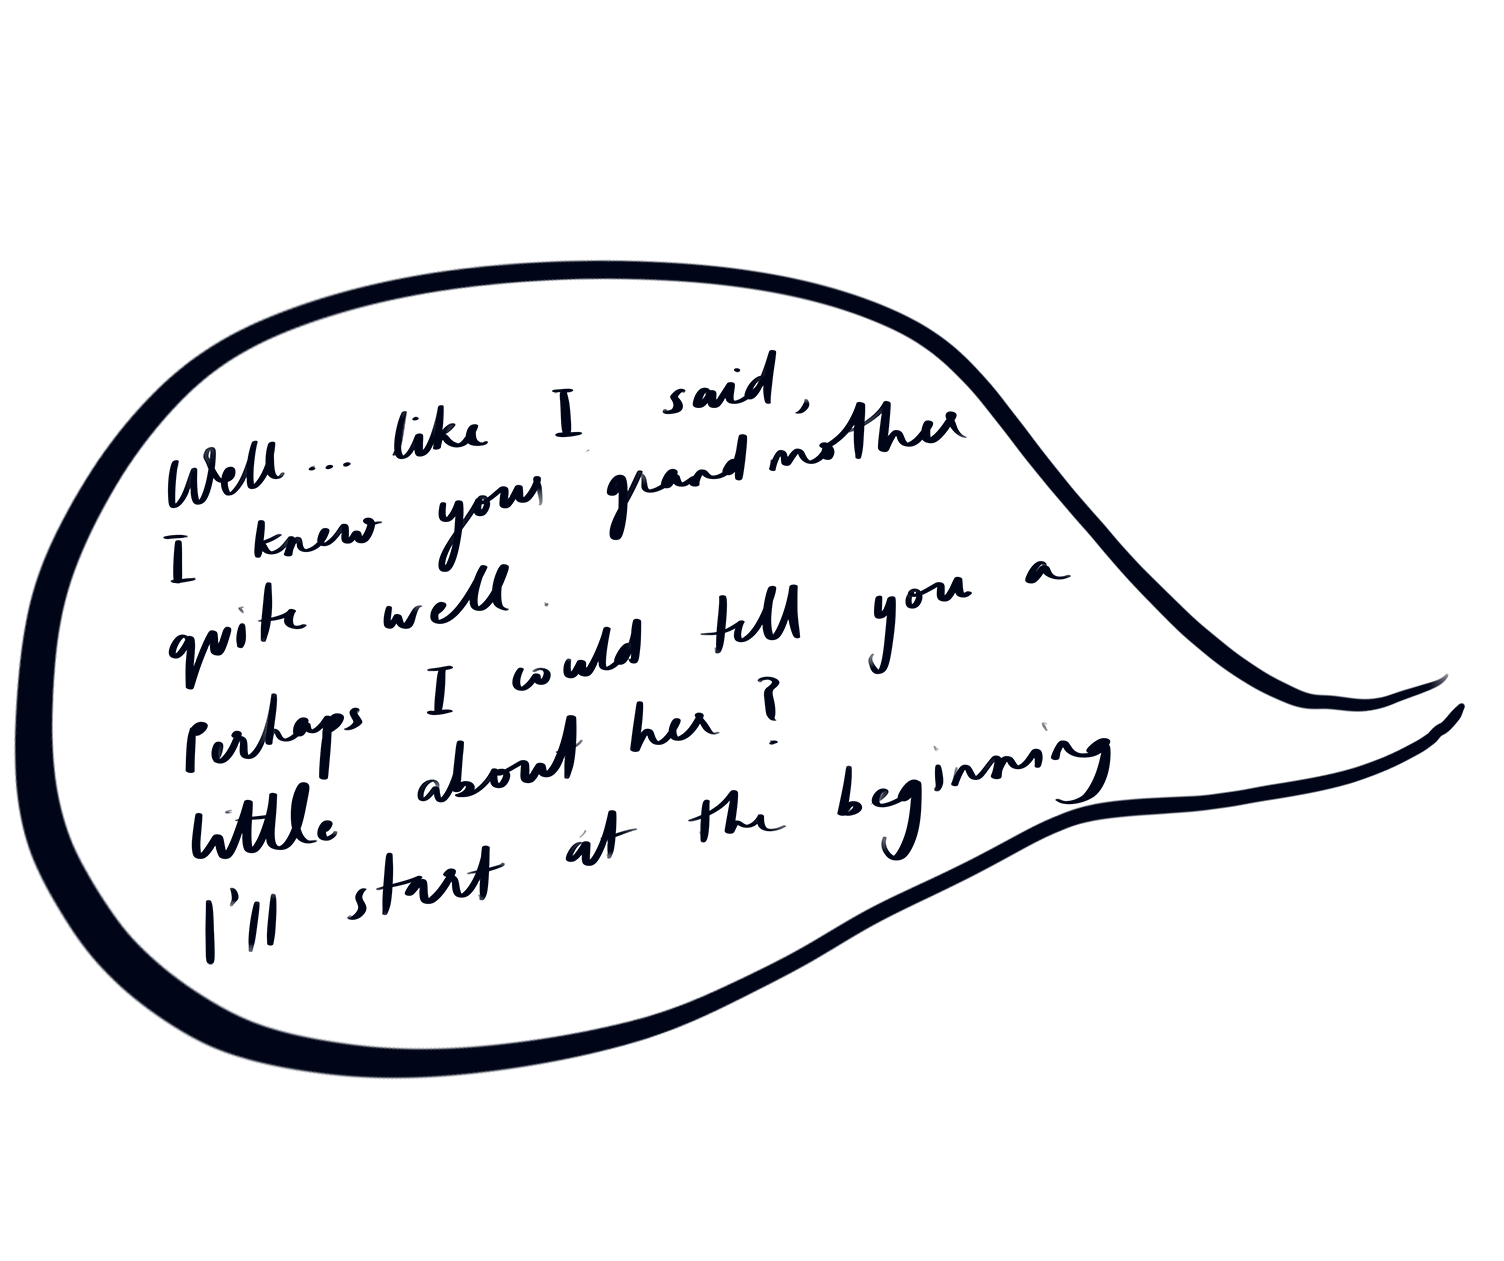 Well... like I said,
I knew your grandmother
quite well.
Perhaps I could tell you a
little about her?
I'll start at the beginning